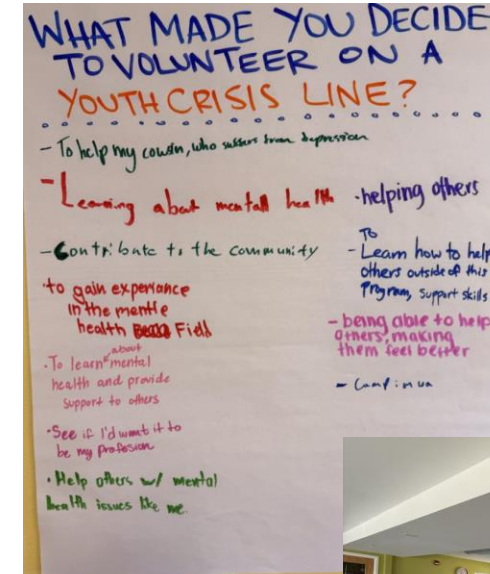 WHAT MADE YOU DECIDE
TO VOLUNTEER ON A
YOUTH CRISIS LINE?
- To help my cousin, who suffers from depression
- Learning about mental health
- Contribute to the community
·to gain experiance
in the mentle
health Field
·To learn about mental
health and provide
support to others
·See if I'd want it to
be my profesion
·Help others w/ mental
health issues like me
·helping others
- To Learn how to help
others outside of this
Program, support skills
- being able to help
others, making
them feel better